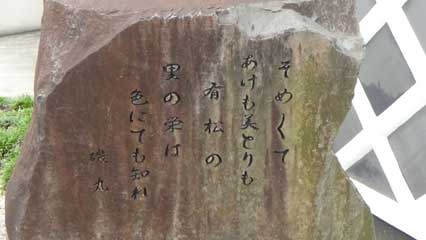 そめくて
あけも美とりも
有松の
里の栄は
色にても知れ
磯丸